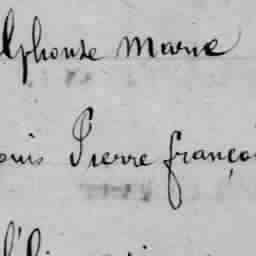 lphonse Marie
ouis Pierre franço